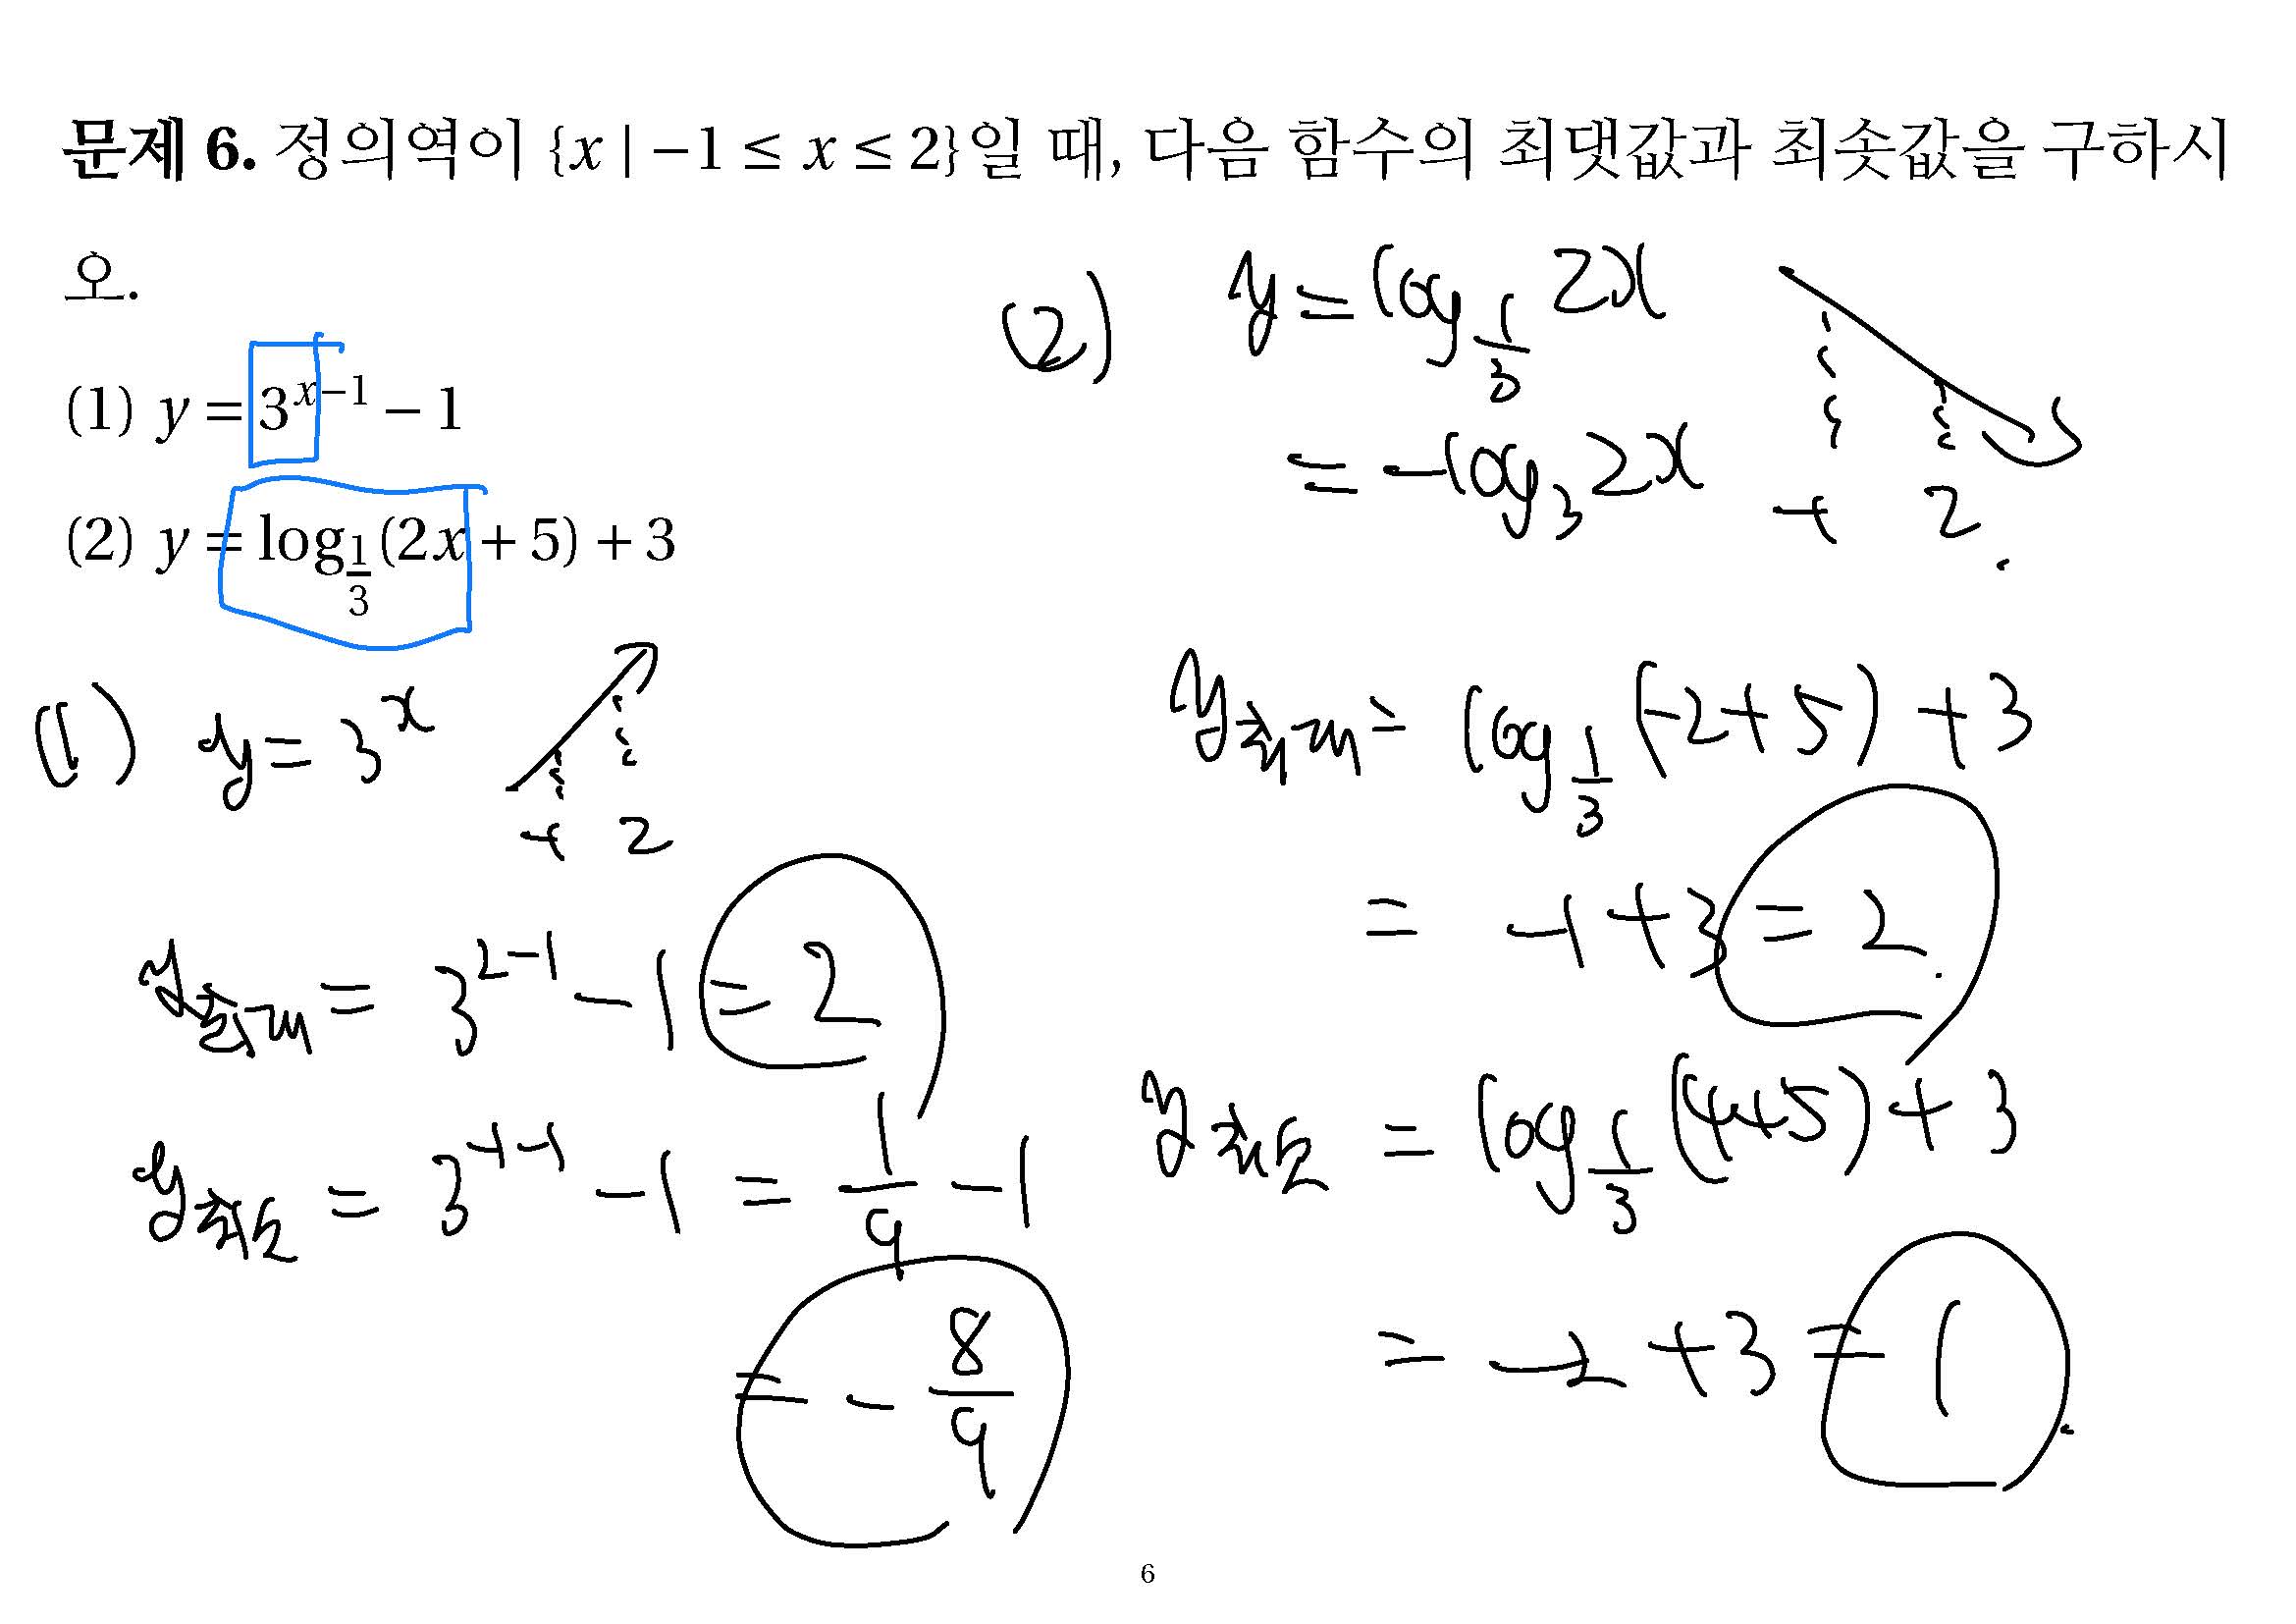 문제 6. 정의역이 {x | −1 ≤ x ≤ 2}일 때, 다음 함수의 최댓값과 최솟값을 구하시
오.
(1) y = 3^{x−1} − 1
(2) y = log_{1/3}(2x + 5) + 3
(1) y = 3^x
-1 2
y최대 = 3^{2-1} - 1 = 2
y최소 = 3^{-1-1} - 1 = 1/9 - 1
= - 8/9
(2) y = log_{1/3} 2x
= -log_3 2x
-1 2
y최대 = log_{1/3} (-2+5) + 3
= -1 + 3 = 2
y최소 = log_{1/3} (4+5) + 3
= -2 + 3 = 1
6